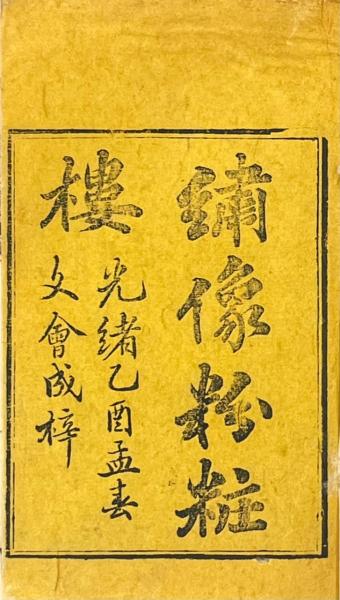 繡像粉粧
樓
光緒乙酉孟春
文會成梓